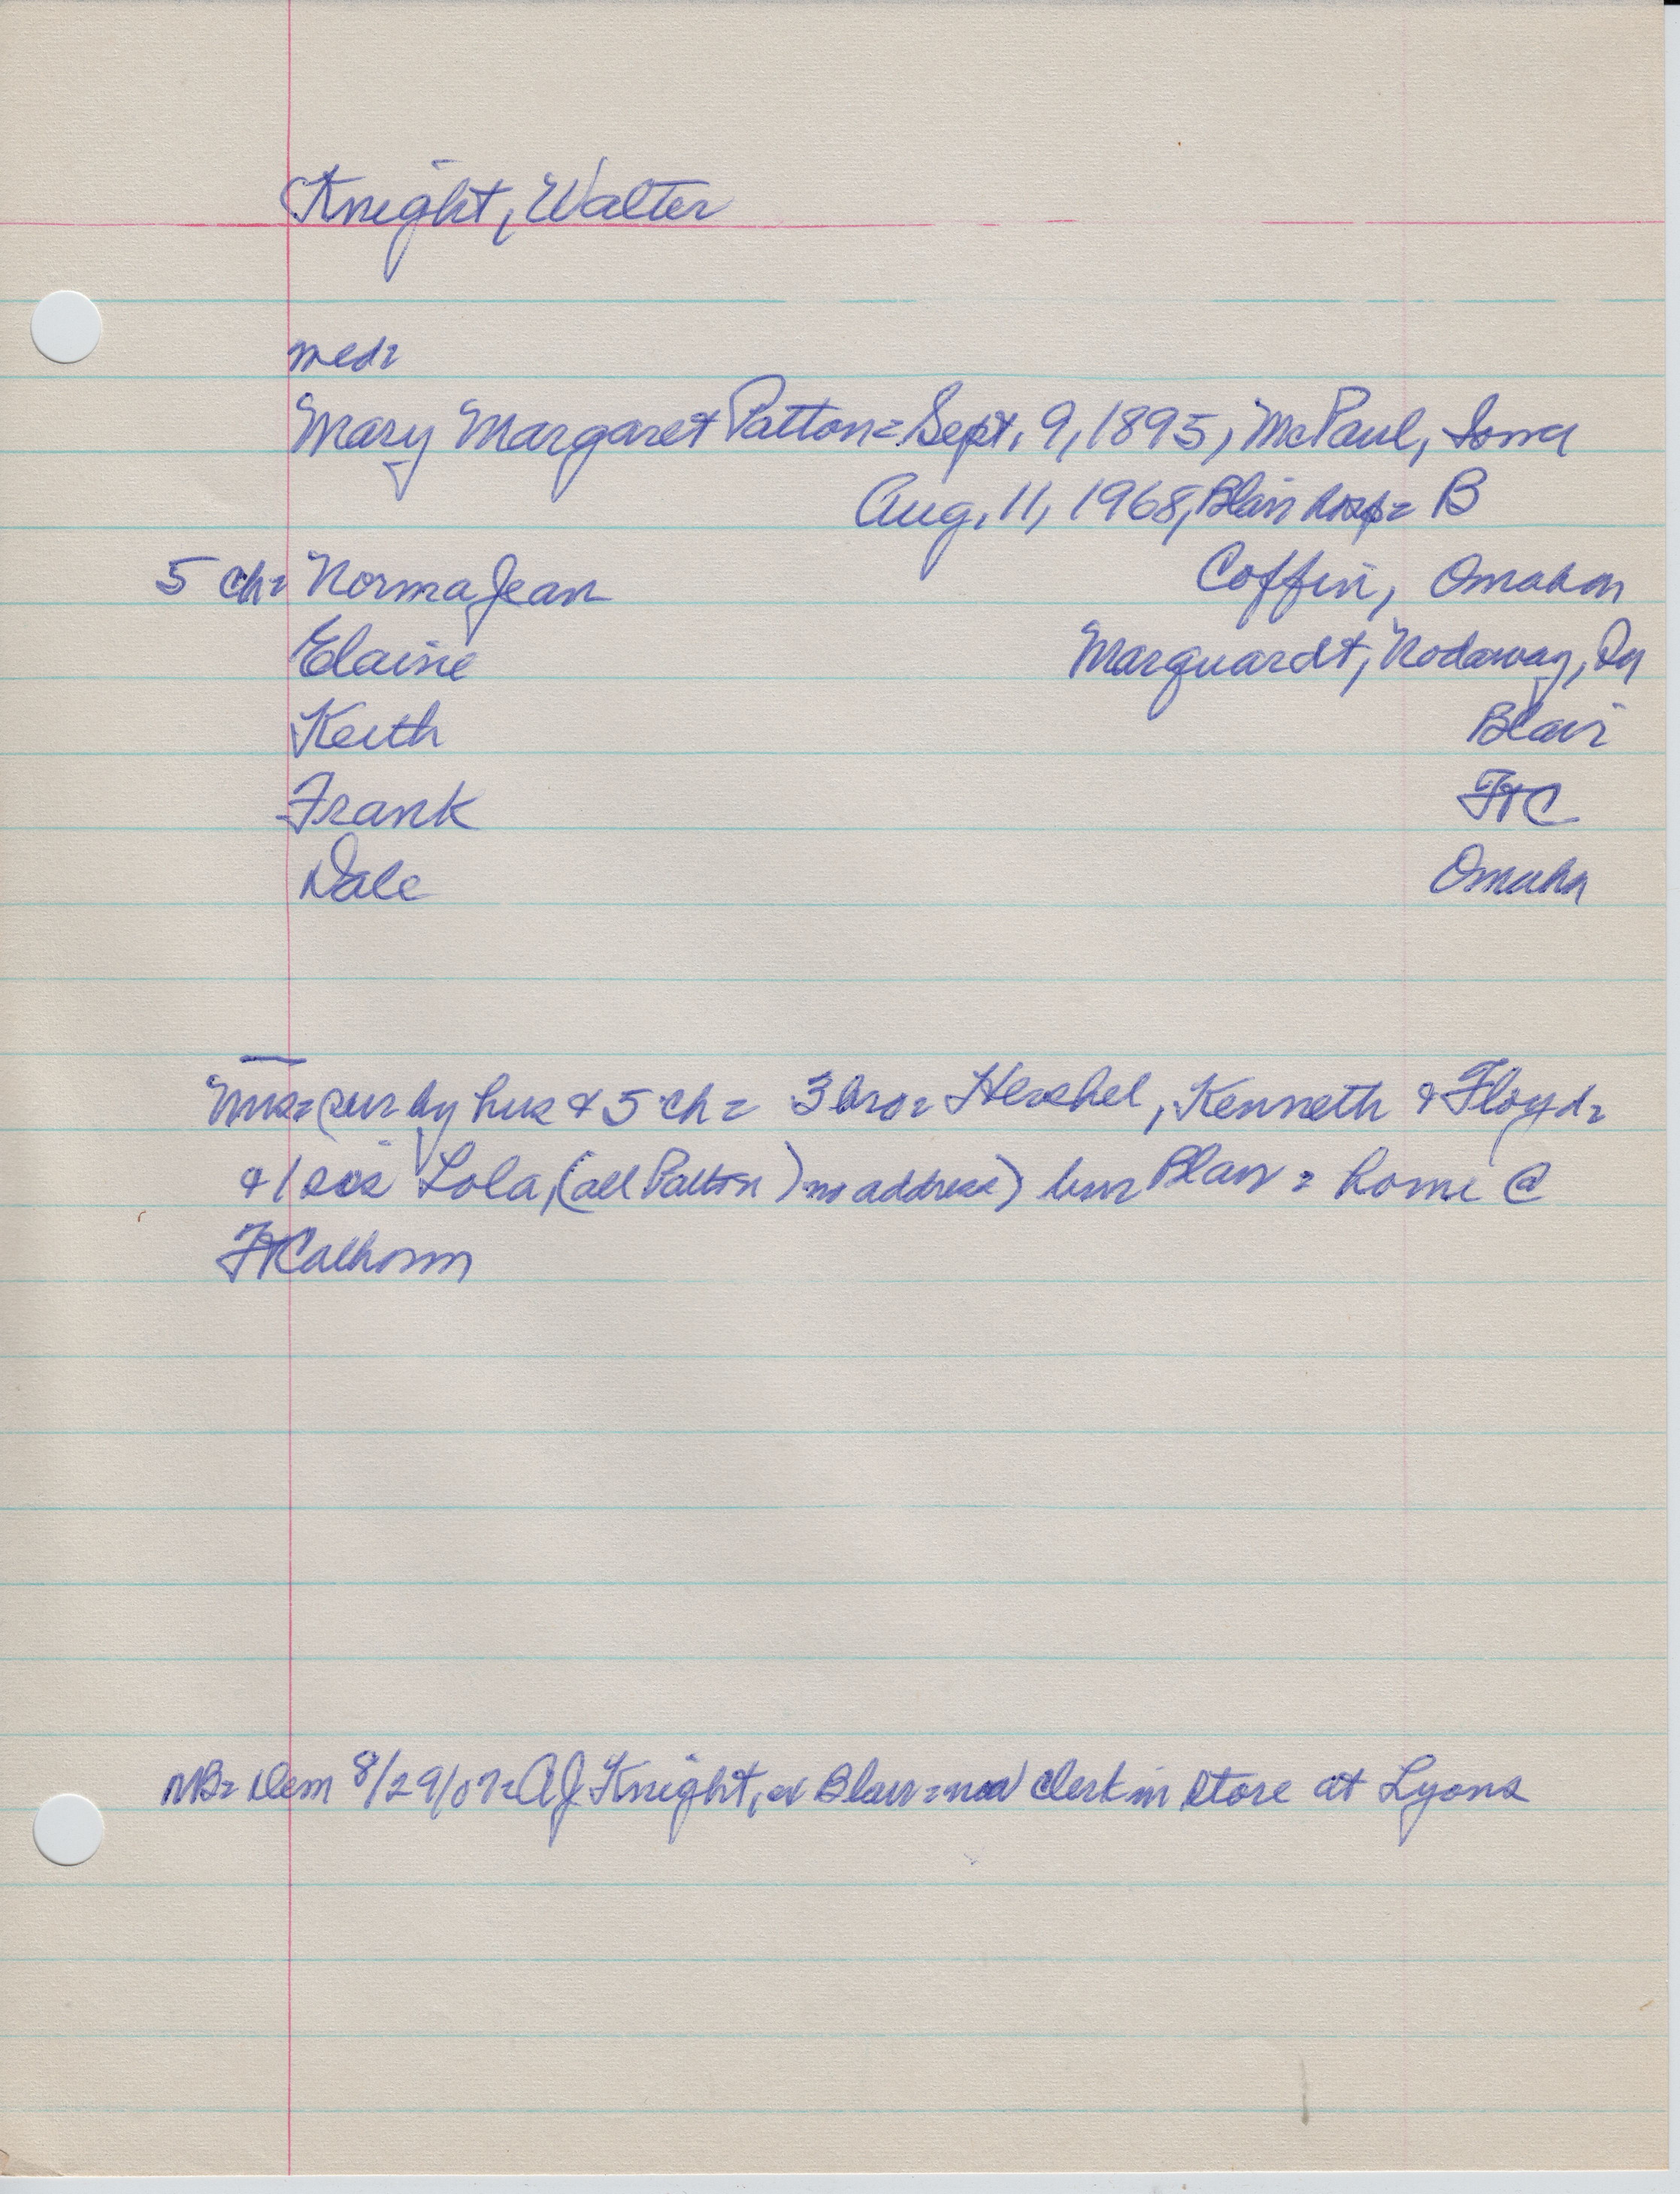 Knight, Walter
med=
Mary Margaret Patton = Sept. 9, 1895, McPaul, Iowa
Aug. 11, 1968, Blair hosp = B
5 ch = Norma Jean Coffin, Omaha
Elaine Marquardt, Nodaway, Ia
Keith Blair
Frank FtC
Dale Omaha
Mrs = (sur by hus & 5 ch = 3 bro = Hershel, Kenneth & Floyd =
& 1 sis Lola, (all Patton) no address) bur Blair = home @
Ft Calhoun
NB = Dem 8/29/07 = AJ Knight, ex Blair = now clerk in store at Lyons